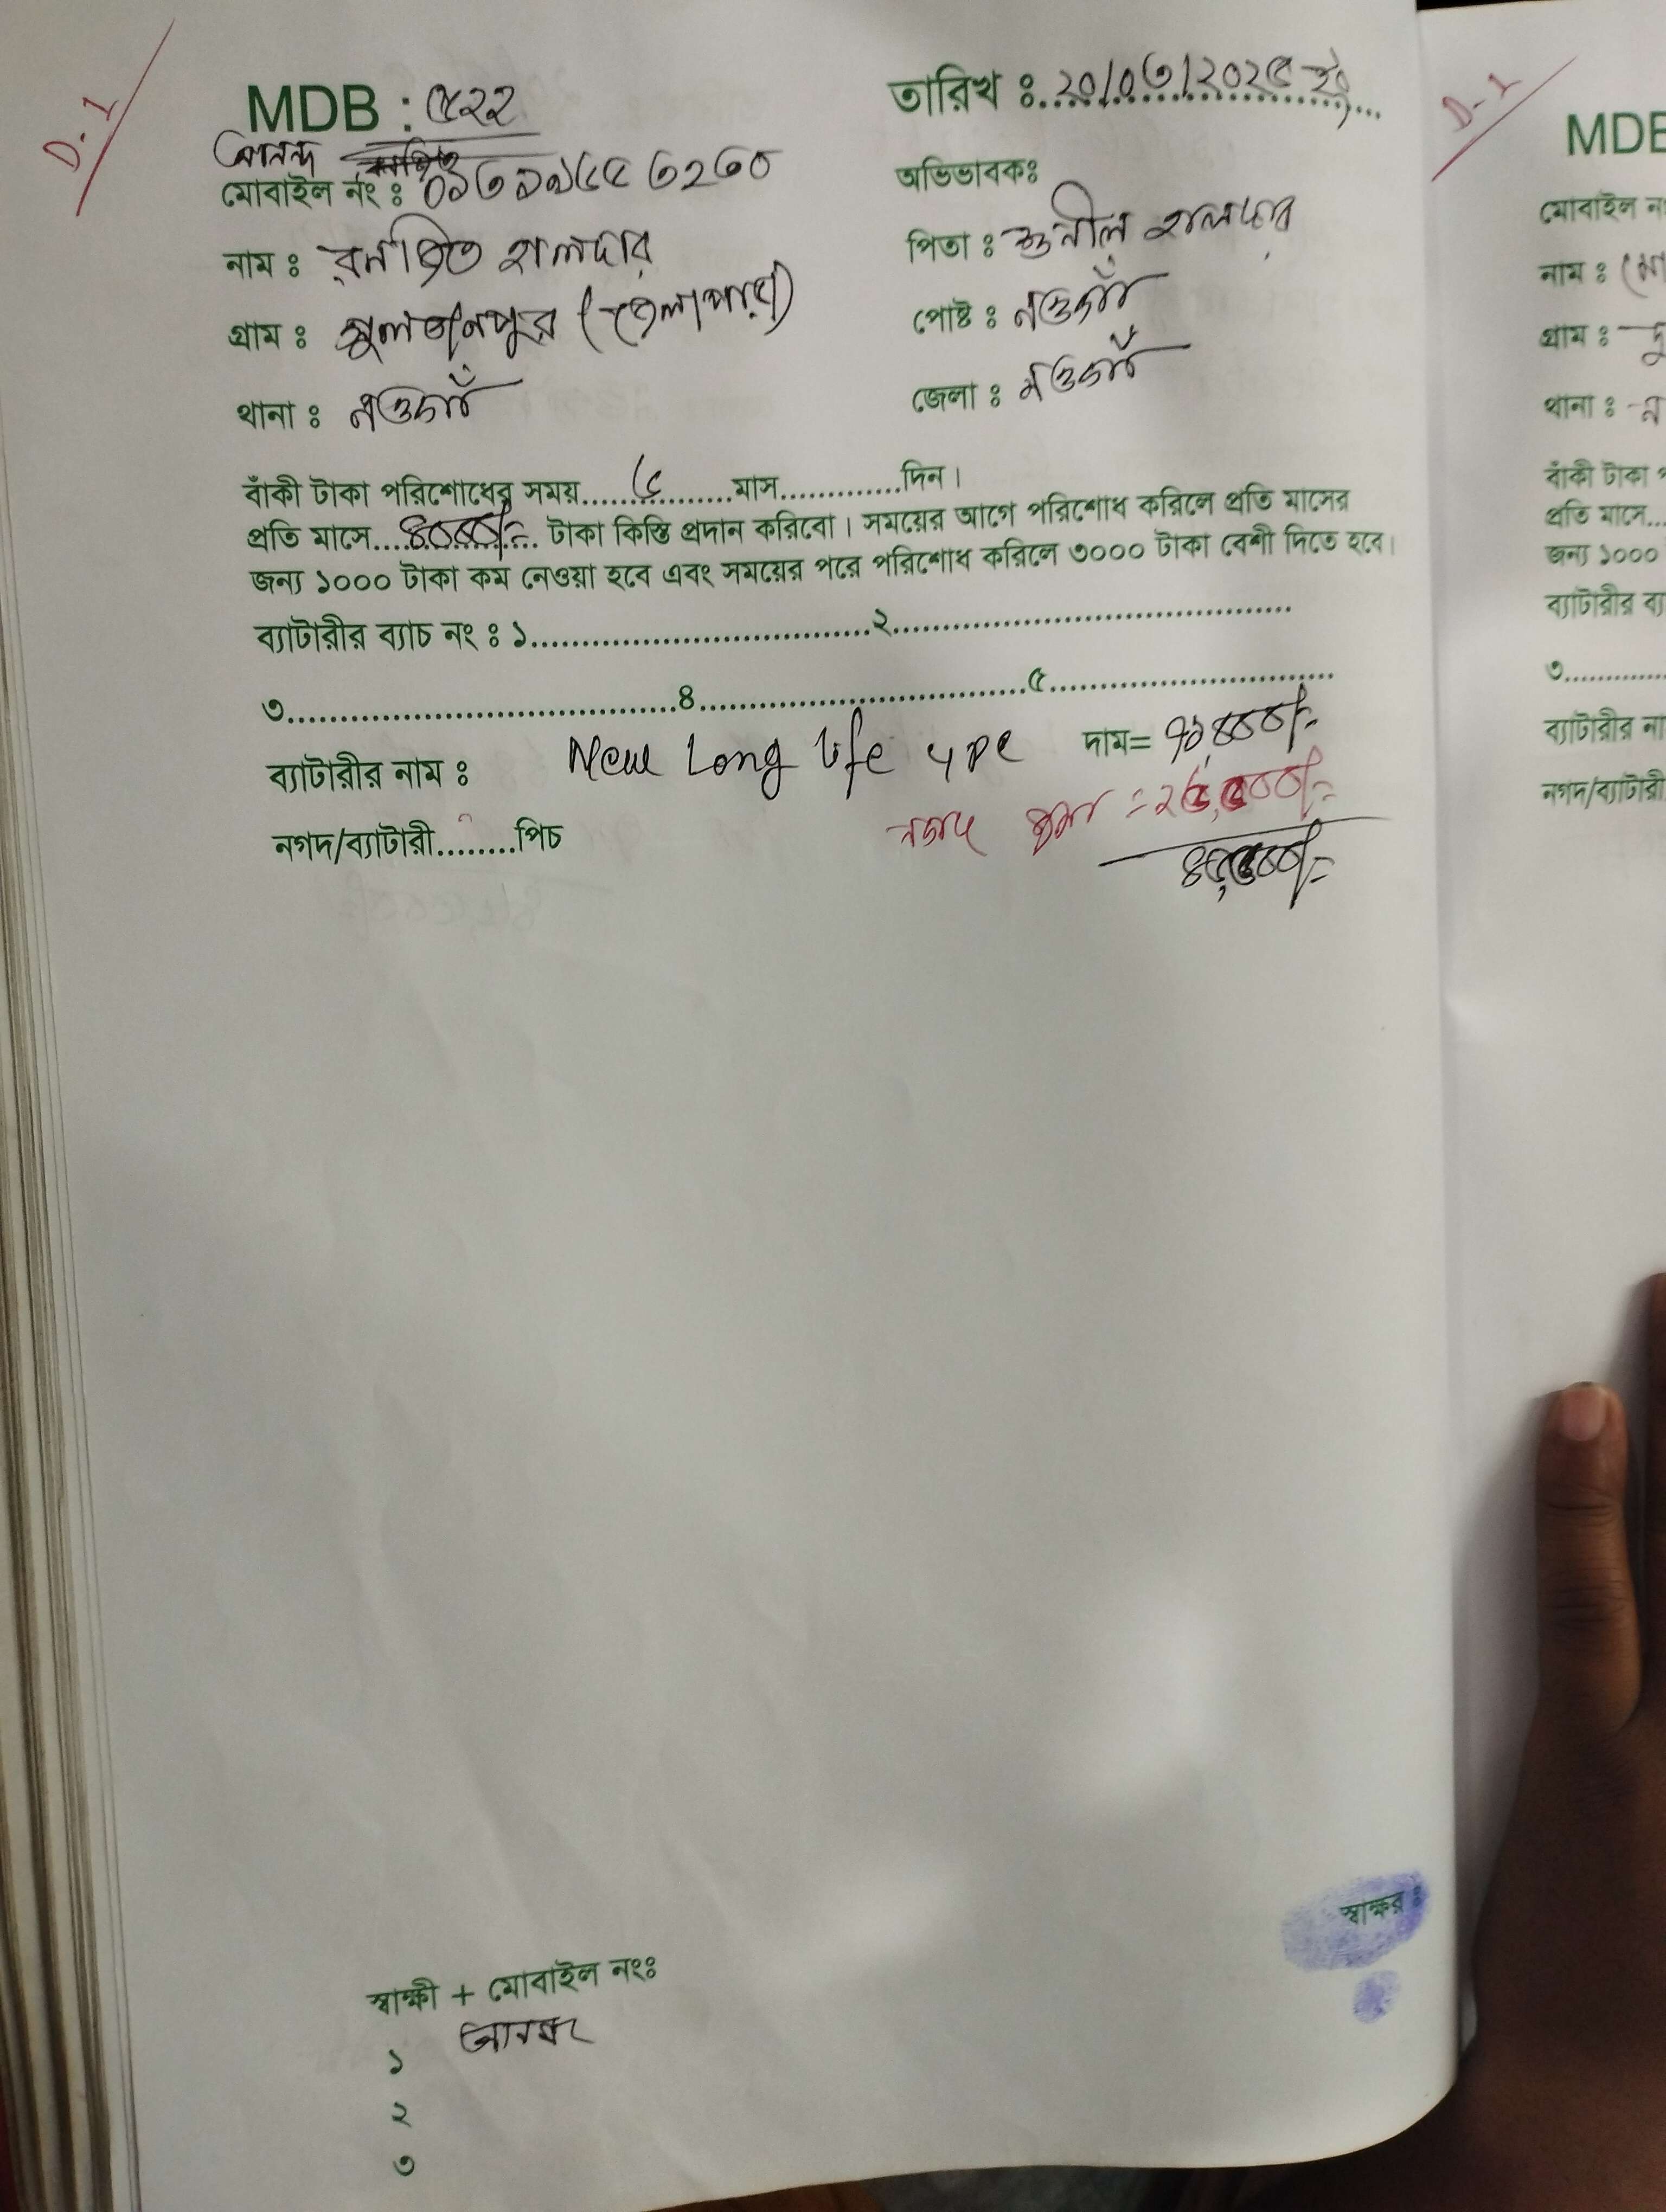 D-1
MDB : ৫২২
তারিখ ঃ ২০/০৩/২০২৫ ইং
আনন্দ
মোবাইল নং ঃ
অভিভাবকঃ
নাম ঃ রনজিত হালদার
পিতা ঃ সুনীল হালদার
গ্রাম ঃ সুলতানপুর (জেলাপাড়া)
পোষ্ট ঃ নওগাঁ
থানা ঃ নওগাঁ
জেলা ঃ নওগাঁ
বাঁকী টাকা পরিশোধের সময়......৫........মাস.............দিন।
প্রতি মাসে....৪০০০/=.. টাকা কিস্তি প্রদান করিবো। সময়ের আগে পরিশোধ করিলে প্রতি মাসের
জন্য ১০০০ টাকা কম নেওয়া হবে এবং সময়ের পরে পরিশোধ করিলে ৩০০০ টাকা বেশী দিতে হবে।
ব্যাটারীর ব্যাচ নং ঃ ১................................২......................................
৩.....................................৪...............................৫...........................
ব্যাটারীর নাম ঃ New Long Life 4 pc দাম=
নগদ জমা =
নগদ/ব্যাটারী........পিচ
স্বাক্ষর ঃ
স্বাক্ষী + মোবাইল নংঃ
১
২
৩
D-1
MDB
মোবাইল নং
নাম ঃ
গ্রাম ঃ
থানা ঃ
বাঁকী টাকা
প্রতি মাসে...
জন্য ১০০০
ব্যাটারীর ব্য
৩.............
ব্যাটারীর না
নগদ/ব্যাটারী